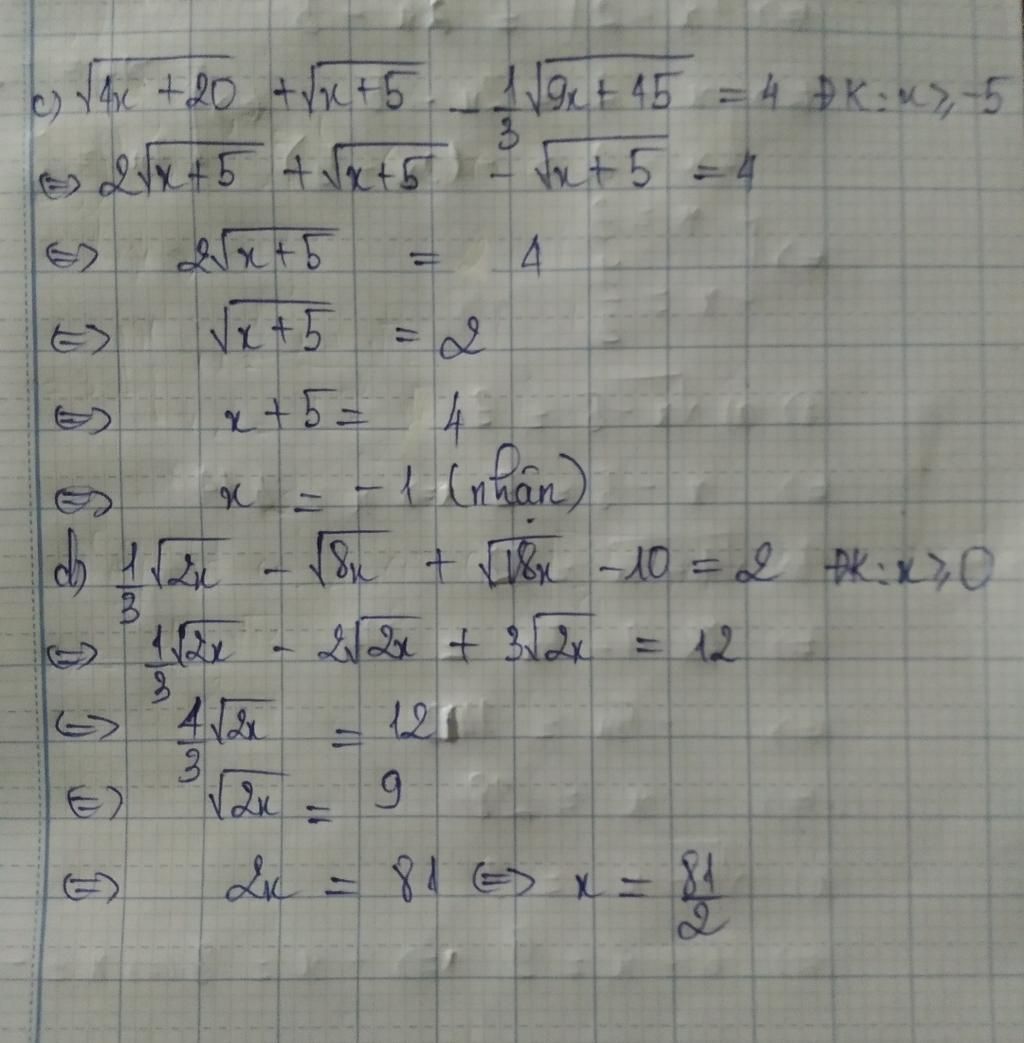 c) √(4x + 20) + √(x + 5) - 1/3 √(9x + 45) = 4 ĐK: x ≥ -5
⇔ 2√(x + 5) + √(x + 5) - √(x + 5) = 4
⇔ 2√(x + 5) = 4
⇔ √(x + 5) = 2
⇔ x + 5 = 4
⇔ x = -1 (nhận)
d) 1/3 √(2x) - √(8x) + √(18x) - 10 = 2 ĐK: x ≥ 0
⇔ 1/3 √(2x) - 2√(2x) + 3√(2x) = 12
⇔ 4/3 √(2x) = 12
⇔ √(2x) = 9
⇔ 2x = 81 ⇔ x = 81/2